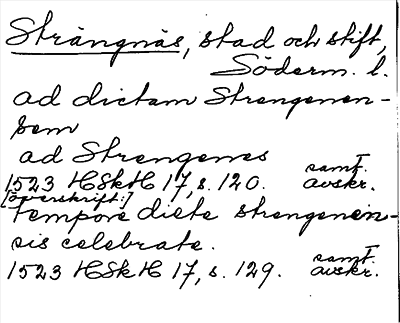 Strängnäs, stad och stift,
Söderm. l.
ad dictam Strengenen-
sem
ad Strengenes
1523 HSkH 17, s. 120. samt. avskr.
[överskrift:]
Tempore diete strengenen-
sis celebrate.
1523 HSkH 17, s. 129. samt. avskr.